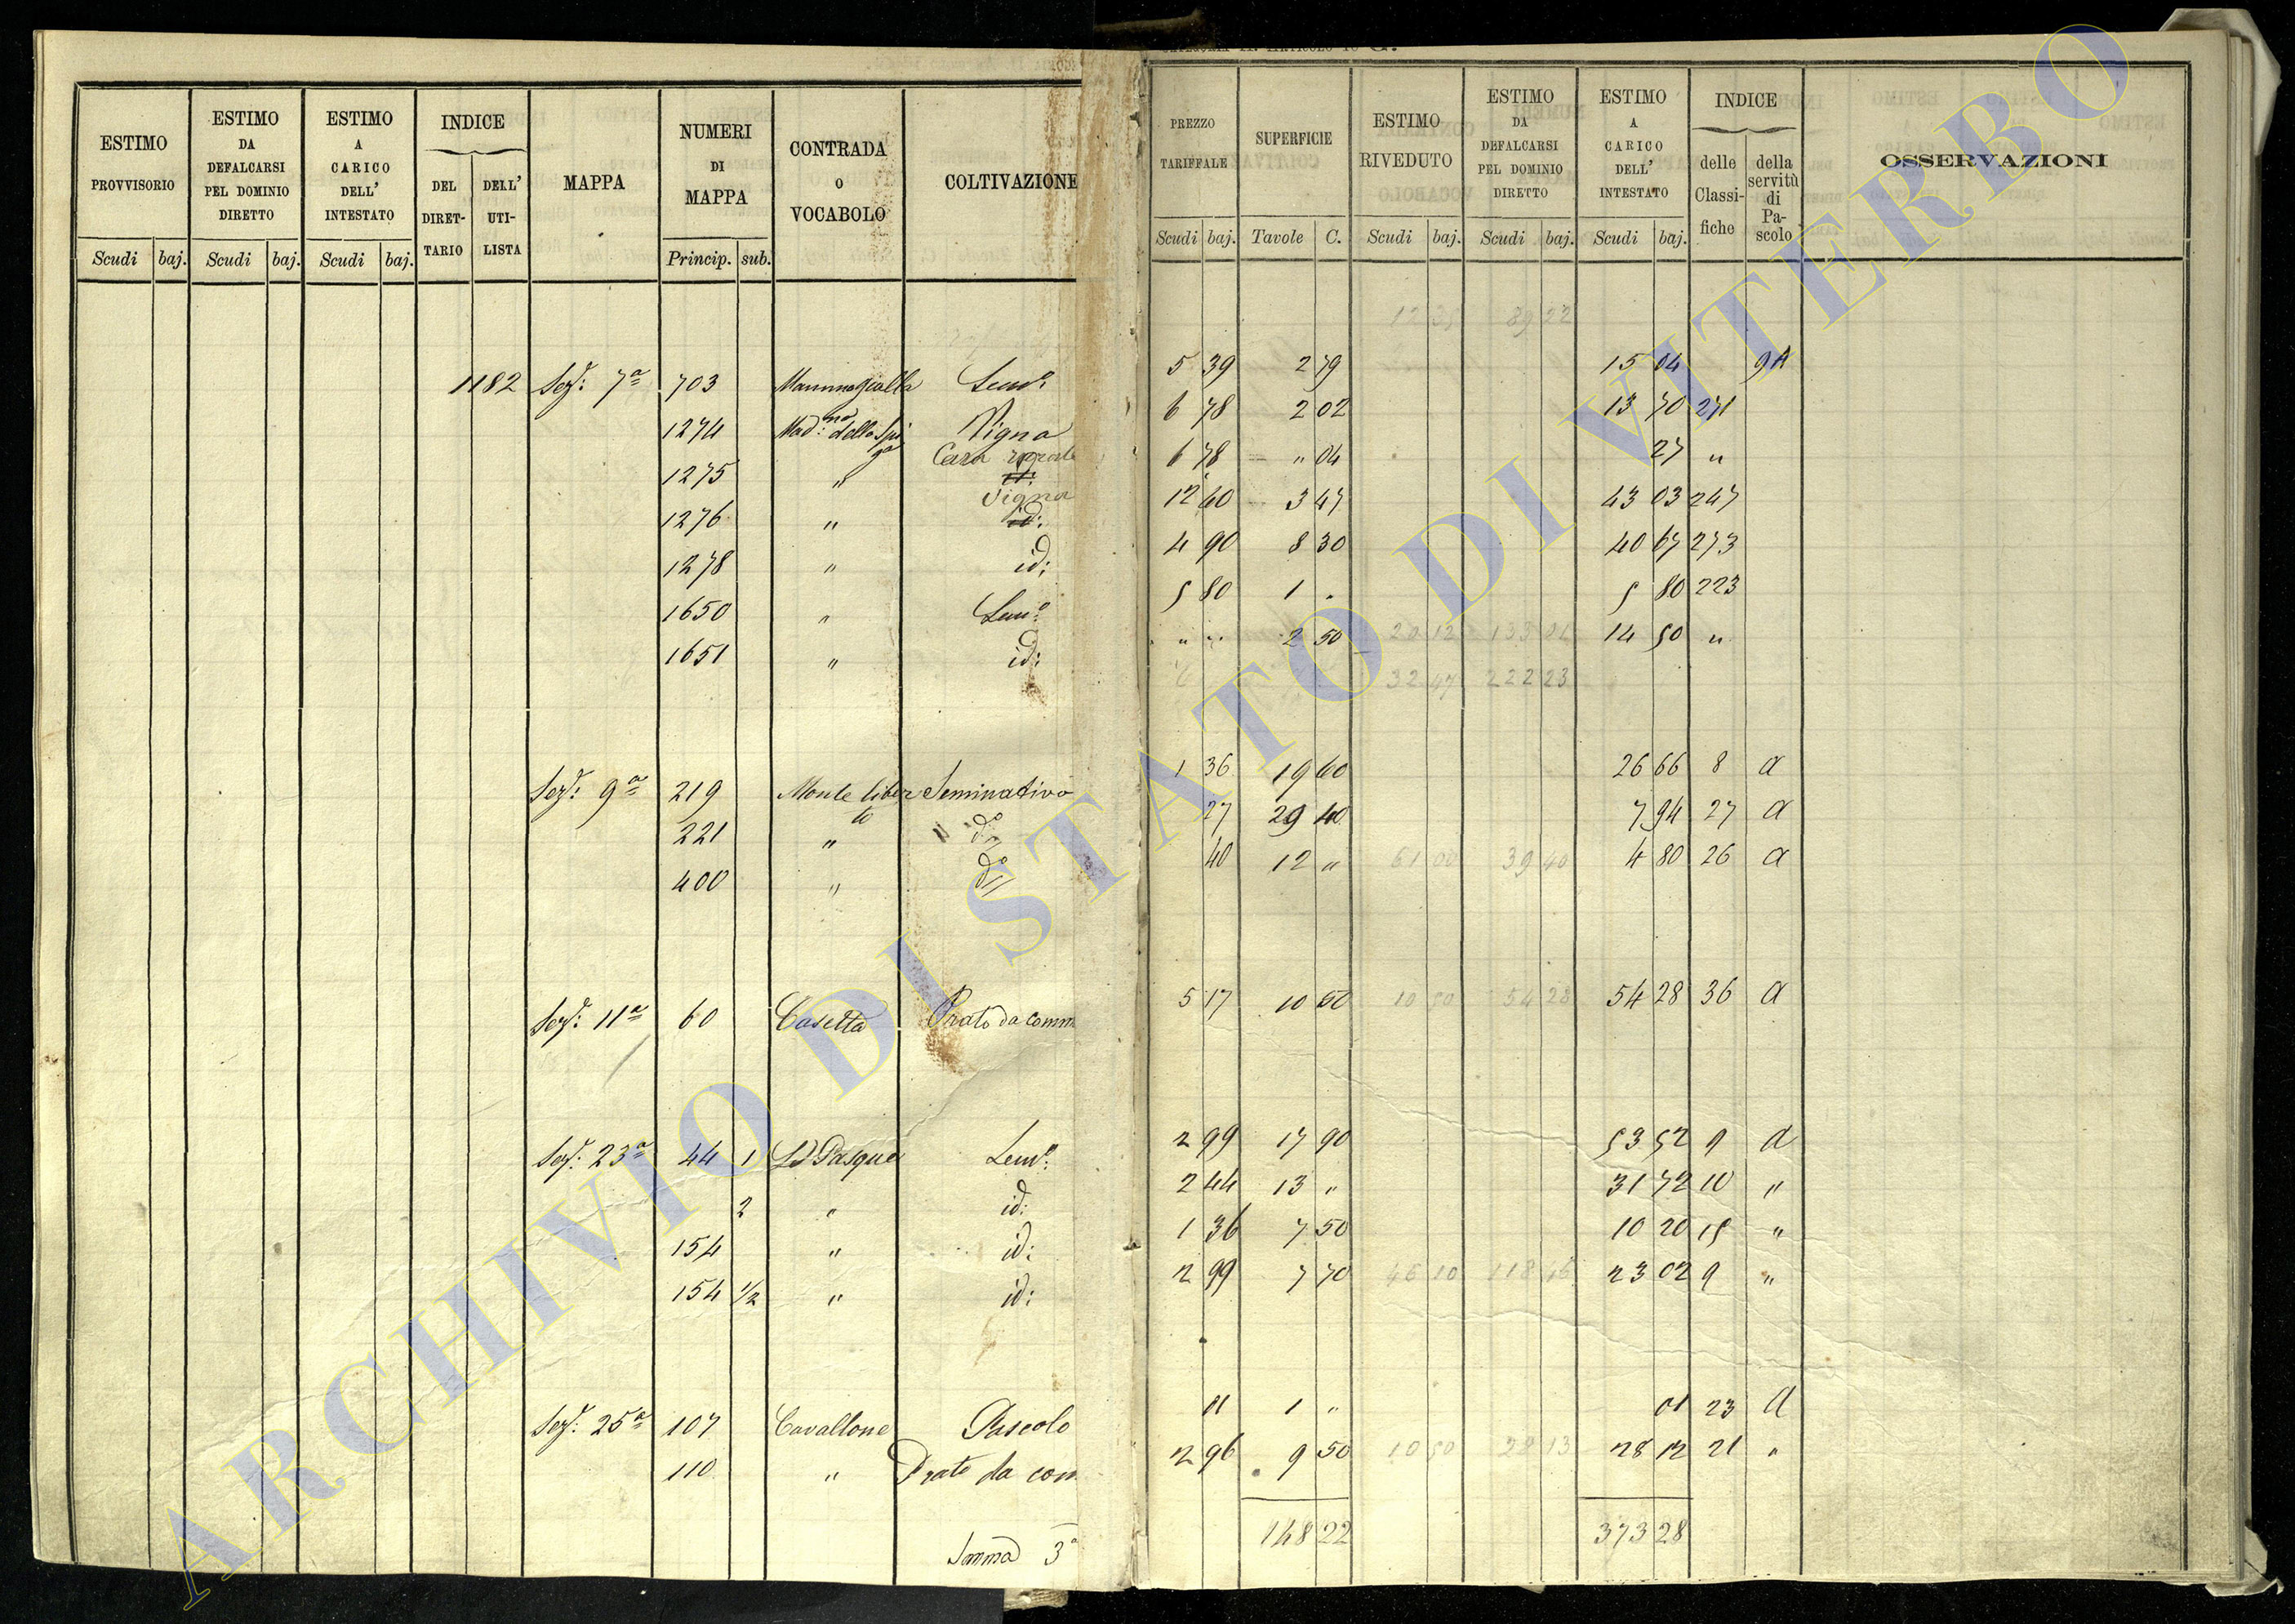 ESTIMO PROVVISORIO Scudi baj.
ESTIMO DA DEFALCARSI PEL DOMINIO DIRETTO Scudi baj.
ESTIMO A CARICO DELL' INTESTATO Scudi baj.
INDICE DEL DIRET-TARIO DELL' UTI-LISTA
MAPPA
NUMERI DI MAPPA Princip. sub.
CONTRADA O VOCABOLO
COLTIVAZIONE
1182 Sez: 7a 703 Mammagialla Semo:
1274 Mad:na della Spi ga Vigna
1275 " Casa rurale id:
1276 " Vigna id:
1278 " id:
1650 " Semo:
1651 " id:
Sez: 9a 219 Monte liber to Seminativo
221 " do
400 " do
Sez: 11a 60 Casetta Prato da comm
Sez: 23a 44 1 Le Pasque Semo:
2 " id:
154 " id:
154 1/2 " id:
Sez: 25a 107 Cavallone Pascolo
110 " Prato da com
Somma 3a
PREZZO TARIFFALE Scudi baj.
SUPERFICIE Tavole C.
ESTIMO RIVEDUTO Scudi baj.
ESTIMO DA DEFALCARSI PEL DOMINIO DIRETTO Scudi baj.
ESTIMO A CARICO DELL' INTESTATO Scudi baj.
INDICE delle Classi-fiche della servitù di Pa-scolo
OSSERVAZIONI
89 22
5 39 2 79 15 04 9A
6 78 2 02 13 70 271
6 78 " 04 27 "
12 40 3 47 43 03 247
4 90 8 30 40 67 273
5 80 1 . 5 80 223
" " 2 50 20 12 14 50 "
32 47 222 23
1 36 19 60 26 66 8 a
27 29 40 7 94 27 a
40 12 " 61 00 39 40 4 80 26 a
5 17 10 50 10 50 54 28 54 28 36 a
2 99 17 90 53 52 9 a
2 44 13 " 31 72 10 "
1 36 7 50 10 20 15 "
2 99 7 70 46 10 118 46 23 02 9 "
01 1 " 01 23 a
2 96 9 50 10 50 28 13 28 12 21 "
148 22 373 28
ARCHIVIO DI STATO DI VITERBO